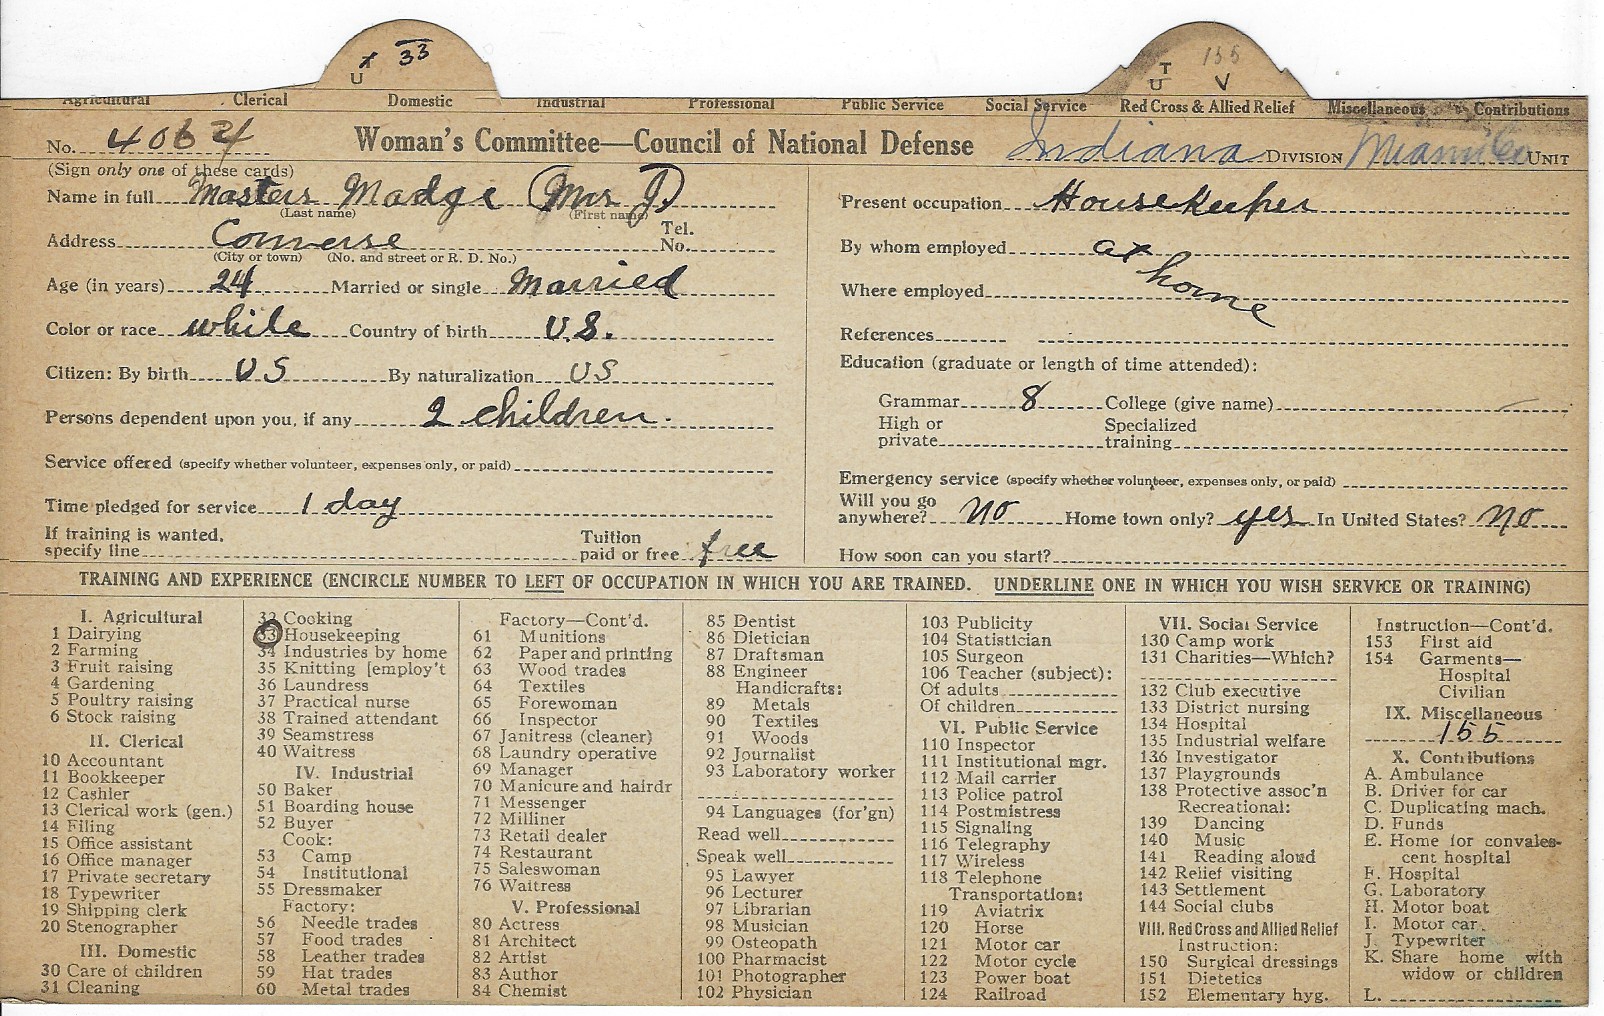 x 33
U
155
T
U V
Agricultural Clerical Domestic Industrial Professional Public Service Social Service Red Cross & Allied Relief Miscellaneous Contributions
No. 40624 Woman's Committee—Council of National Defense Indiana DIVISION Miami Co UNIT
(Sign only one of these cards)
Name in full Masters Madge (Mrs J)
(Last name) (First name)
Address Converse Tel. No.
(City or town) (No. and street or R. D. No.)
Age (in years) 24 Married or single Married
Color or race white Country of birth U.S.
Citizen: By birth US By naturalization US
Persons dependent upon you, if any 2 children.
Service offered (specify whether volunteer, expenses only, or paid)
Time pledged for service 1 day
If training is wanted, specify line Tuition paid or free free
Present occupation Housekeeper
By whom employed at
Where employed home
References
Education (graduate or length of time attended):
Grammar 8 College (give name)
High or private Specialized training
Emergency service (specify whether volunteer, expenses only, or paid)
Will you go anywhere? no Home town only? yes In United States? no
How soon can you start?
TRAINING AND EXPERIENCE (ENCIRCLE NUMBER TO LEFT OF OCCUPATION IN WHICH YOU ARE TRAINED. UNDERLINE ONE IN WHICH YOU WISH SERVICE OR TRAINING)
I. Agricultural
1 Dairying
2 Farming
3 Fruit raising
4 Gardening
5 Poultry raising
6 Stock raising
II. Clerical
10 Accountant
11 Bookkeeper
12 Cashier
13 Clerical work (gen.)
14 Filing
15 Office assistant
16 Office manager
17 Private secretary
18 Typewriter
19 Shipping clerk
20 Stenographer
III. Domestic
30 Care of children
31 Cleaning
32 Cooking
33 Housekeeping
34 Industries by home
35 Knitting [employ't
36 Laundress
37 Practical nurse
38 Trained attendant
39 Seamstress
40 Waitress
IV. Industrial
50 Baker
51 Boarding house
52 Buyer
Cook:
53 Camp
54 Institutional
55 Dressmaker
Factory:
56 Needle trades
57 Food trades
58 Leather trades
59 Hat trades
60 Metal trades
Factory—Cont'd.
61 Munitions
62 Paper and printing
63 Wood trades
64 Textiles
65 Forewoman
66 Inspector
67 Janitress (cleaner)
68 Laundry operative
69 Manager
70 Manicure and hairdr
71 Messenger
72 Milliner
73 Retail dealer
74 Restaurant
75 Saleswoman
76 Waitress
V. Professional
80 Actress
81 Architect
82 Artist
83 Author
84 Chemist
85 Dentist
86 Dietician
87 Draftsman
88 Engineer
Handicrafts:
89 Metals
90 Textiles
91 Woods
92 Journalist
93 Laboratory worker
94 Languages (for'gn)
Read well
Speak well
95 Lawyer
96 Lecturer
97 Librarian
98 Musician
99 Osteopath
100 Pharmacist
101 Photographer
102 Physician
103 Publicity
104 Statistician
105 Surgeon
106 Teacher (subject):
Of adults
Of children
VI. Public Service
110 Inspector
111 Institutional mgr.
112 Mail carrier
113 Police patrol
114 Postmistress
115 Signaling
116 Telegraphy
117 Wireless
118 Telephone
Transportation:
119 Aviatrix
120 Horse
121 Motor car
122 Motor cycle
123 Power boat
124 Railroad
VII. Social Service
130 Camp work
131 Charities—Which?
132 Club executive
133 District nursing
134 Hospital
135 Industrial welfare
136 Investigator
137 Playgrounds
138 Protective assoc'n
Recreational:
139 Dancing
140 Music
141 Reading aloud
142 Relief visiting
143 Settlement
144 Social clubs
VIII. Red Cross and Allied Relief
Instruction:
150 Surgical dressings
151 Dietetics
152 Elementary hyg.
Instruction—Cont'd.
153 First aid
154 Garments—
Hospital
Civilian
IX. Miscellaneous
155
X. Contributions
A. Ambulance
B. Driver for car
C. Duplicating mach.
D. Funds
E. Home for convales-
cent hospital
F. Hospital
G. Laboratory
H. Motor boat
I. Motor car.
J. Typewriter
K. Share home with
widow or children
L.